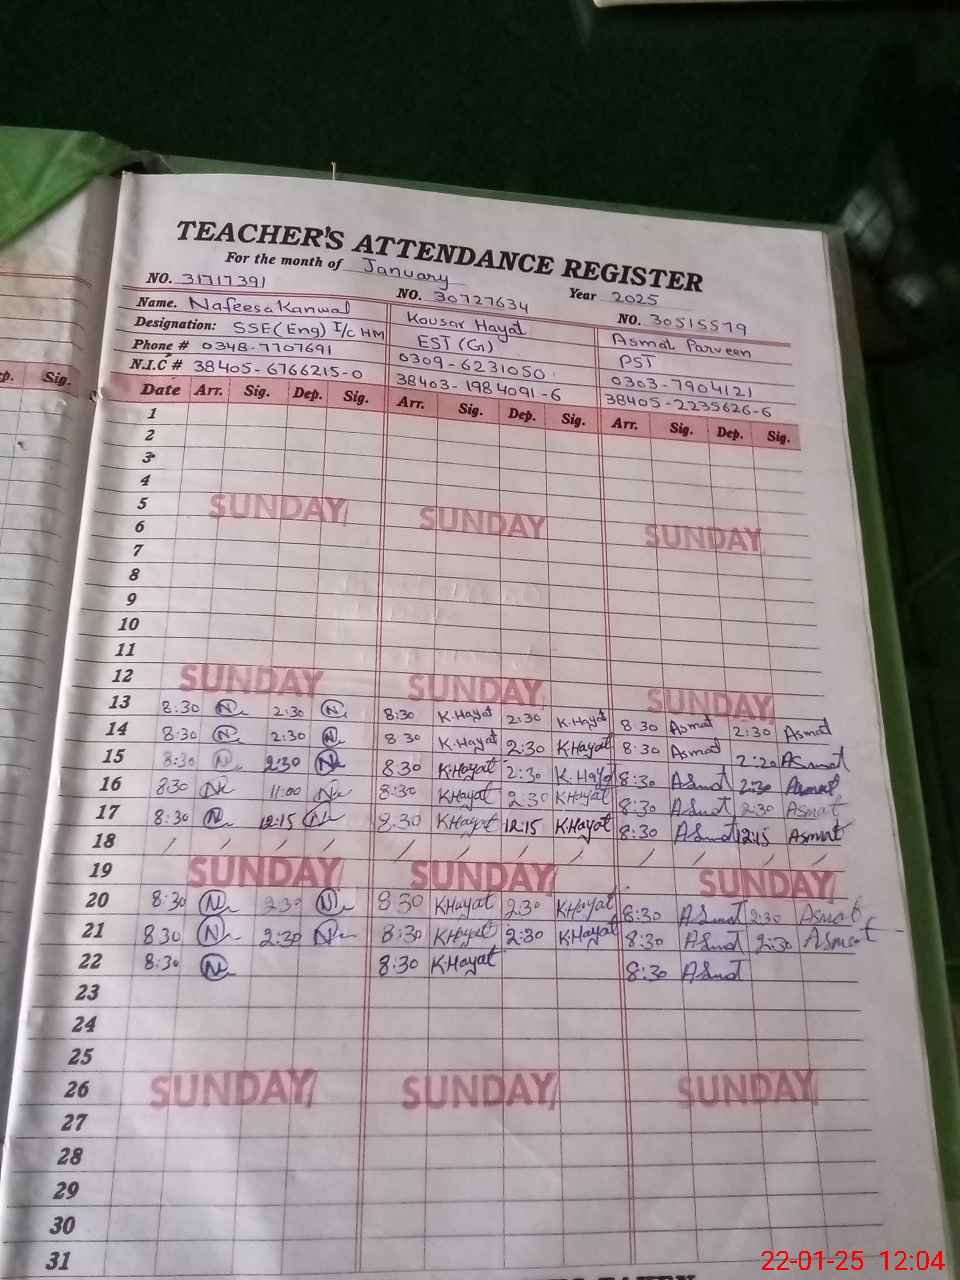 TEACHER'S ATTENDANCE REGISTER
For the month of January Year 2025
NO. 31717391 NO. 30727634 NO. 30515579
Name. Nafeesa Kanwal Kousar Hayat Asmat Parveen
Designation: SSE(Eng) I/c HM EST (G) PST
Phone # 0348-7707691 0309-6231050 0303-7904121
N.I.C # 38405-6766215-0 38403-1984091-6 38405-2235626-6
ep. Sig. Date Arr. Sig. Dep. Sig. Arr. Sig. Dep. Sig. Arr. Sig. Dep. Sig.
1
2
3
4
5 SUNDAY SUNDAY SUNDAY
6
7
8
9
10
11
12 SUNDAY SUNDAY SUNDAY
13 8:30 N 2:30 N 8:30 K.Hayat 2:30 K.Hayat 8:30 Asmat 2:30 Asmat
14 8:30 N 2:30 N 8:30 K.Hayat 2:30 K.Hayat 8:30 Asmat 2:20 Asmat
15 8:30 N 2:30 N 8:30 K.Hayat 2:30 K.Hayat 8:30 Asmat 2:30 Asmat
16 8:30 N 11:00 N 8:30 K.Hayat 2:30 K.Hayat 8:30 Asmat 2:30 Asmat
17 8:30 N 12:15 N 8:30 K.Hayat 12:15 K.Hayat 8:30 Asmat 12:15 Asmat
18 / / / / / / / / / / / /
19 SUNDAY SUNDAY SUNDAY
20 8:30 N 2:30 N 8:30 K.Hayat 2:30 K.Hayat 8:30 Asmat 2:30 Asmat
21 8:30 N 2:30 N 8:30 K.Hayat 2:30 K.Hayat 8:30 Asmat 2:30 Asmat
22 8:30 N 8:30 K.Hayat 8:30 Asmat
23
24
25
26 SUNDAY SUNDAY SUNDAY
27
28
29
30
31
22-01-25 12:04